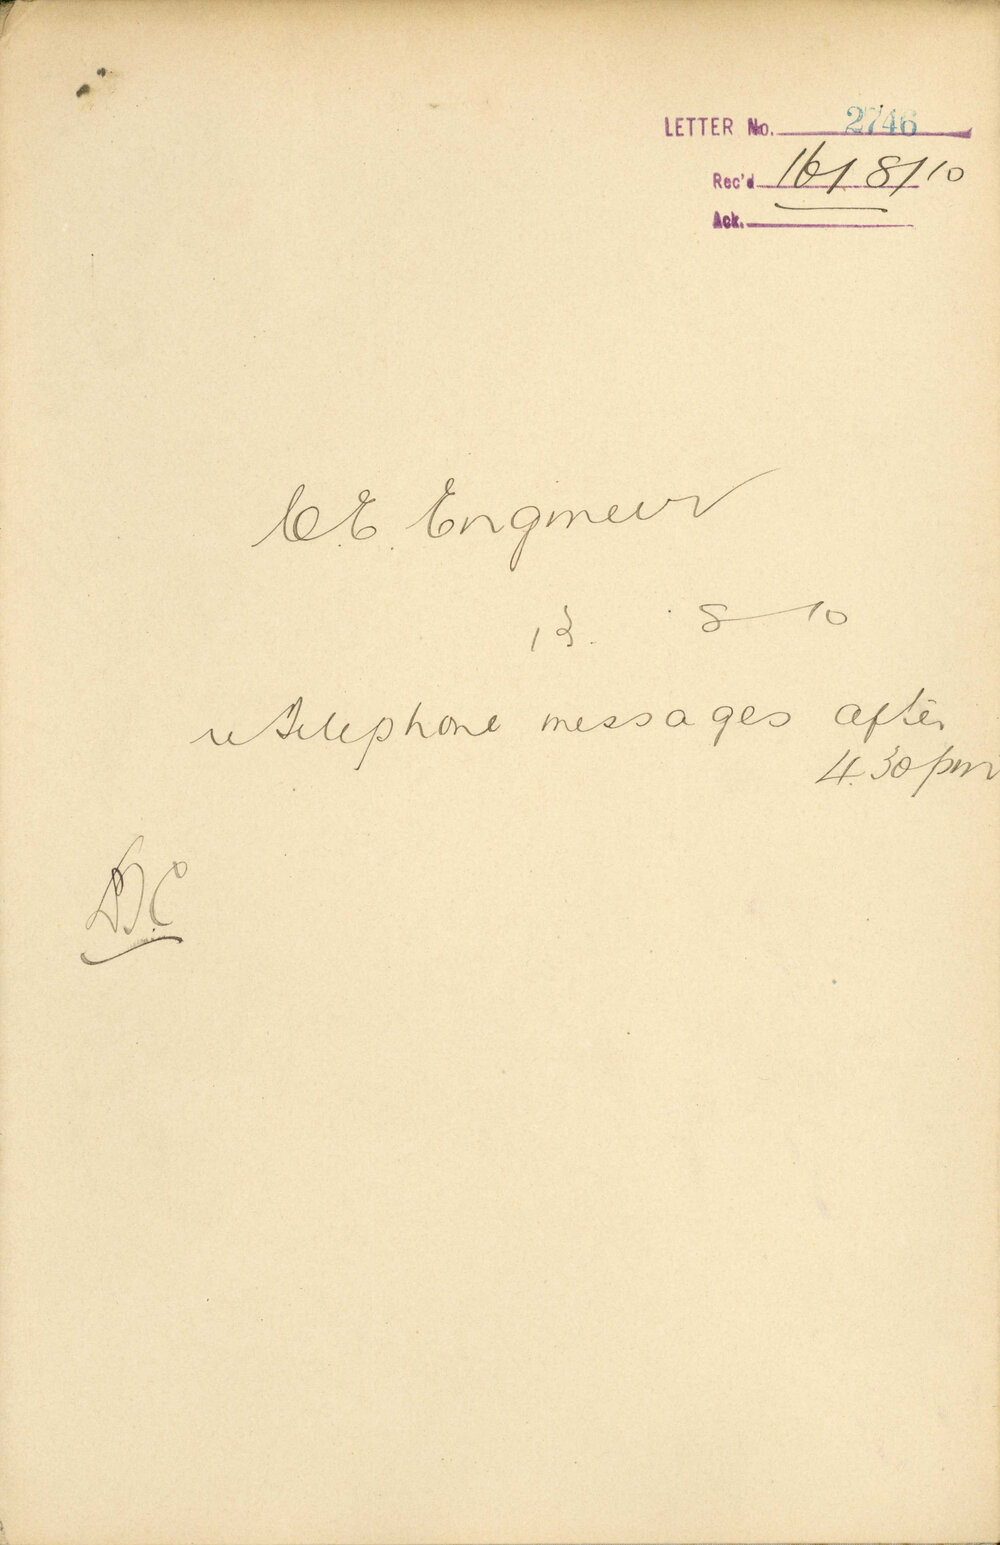 LETTER No. 2746
Rec'd 16/8/10
Ack.
C.E. Engineer
13. 8-10
re Telephone messages after
4.30 pm